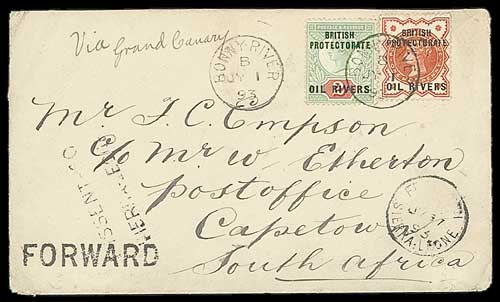 Via Grand Canary
BONNY RIVER
B
JY 1
93
BRITISH
PROTECTORATE
OIL RIVERS
BRITISH
PROTECTORATE
OIL RIVERS
Mr T. C. Empson
c/o Mr W Etherton
postoffice
Capetow
South Africa
FORWARD
SIERRA-LEONE